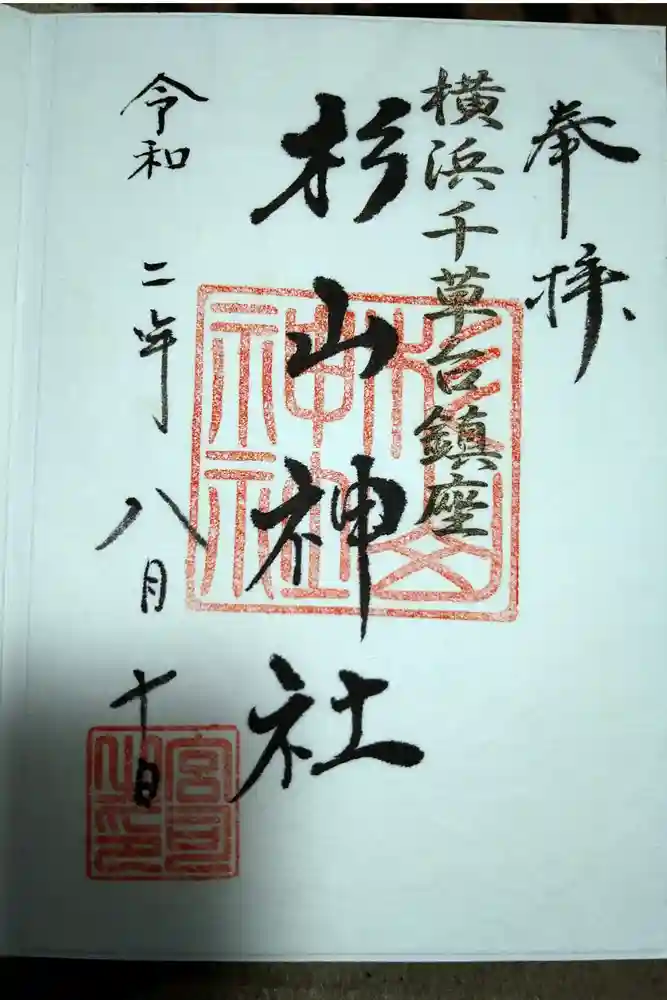 奉拝
横浜千草台鎮座
杉山神社
令和二年八月十日
杉山
神社
宮司
之印